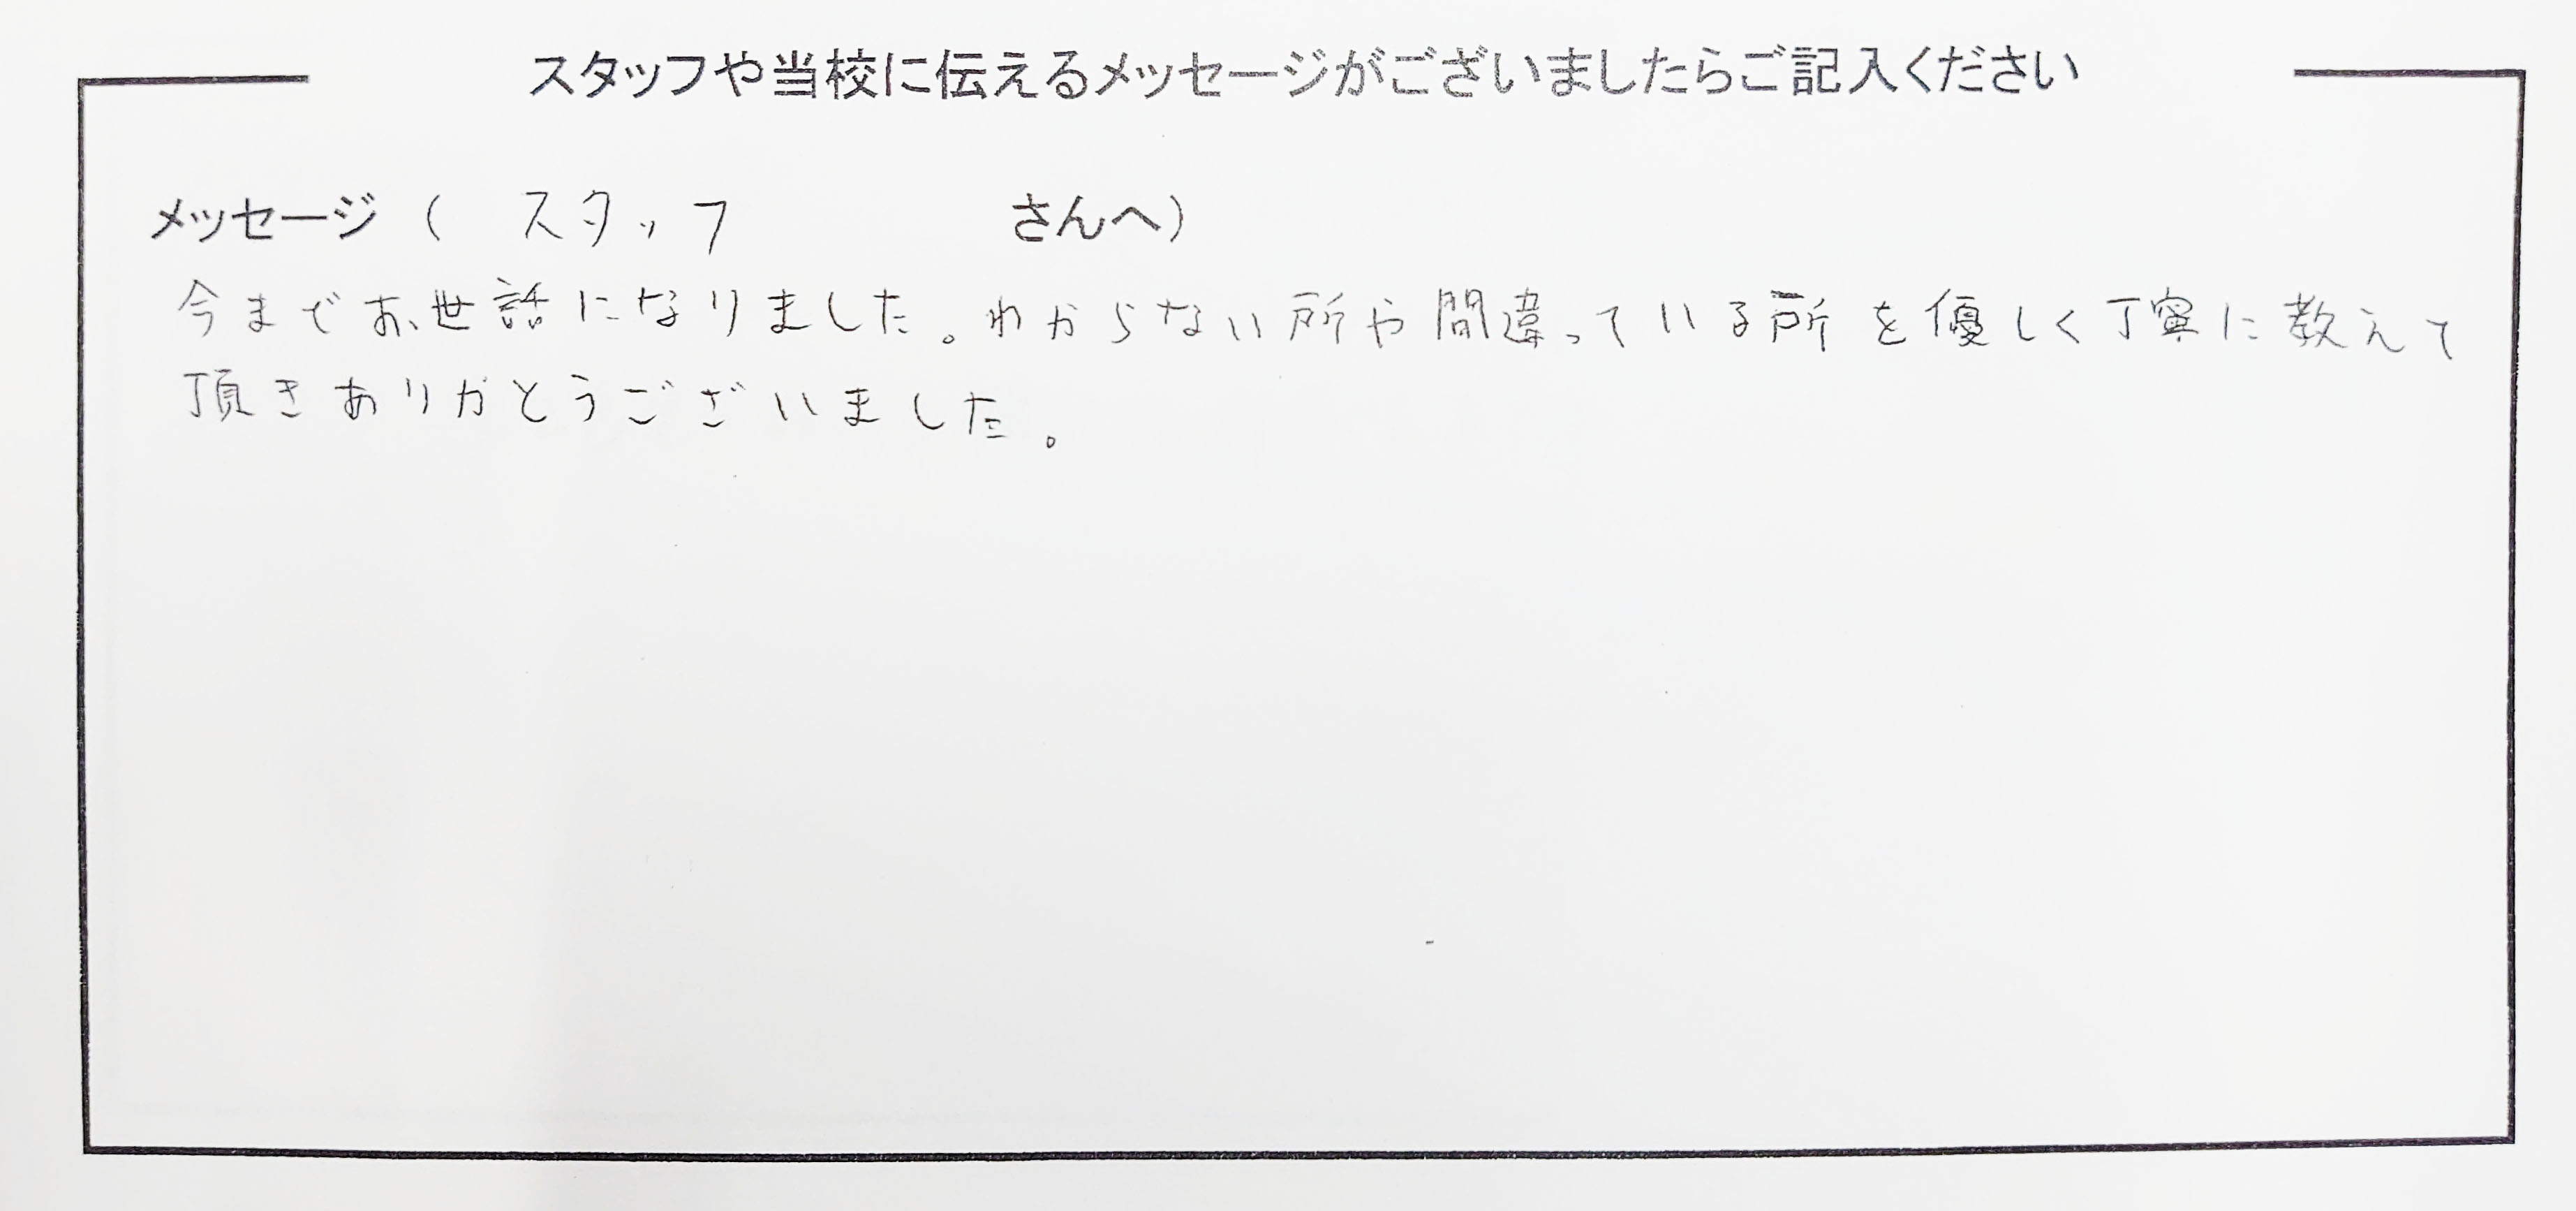 スタッフや当校に伝えるメッセージがございましたらご記入ください
メッセージ（ スタッフ さんへ）
今までお世話になりました。わからない所や間違っている所を優しく丁寧に教えて
頂きありがとうございました。